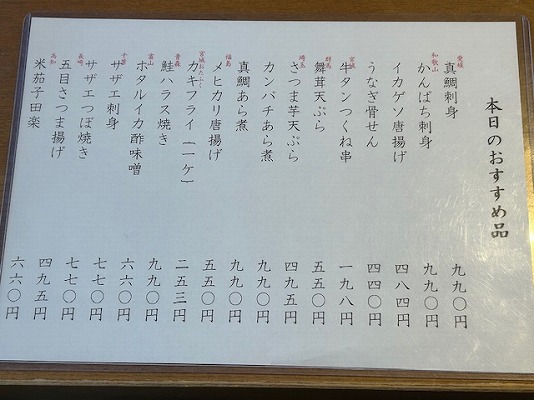 本日のおすすめ品
愛媛
真鯛刺身 九九〇円
和歌山
かんぱち刺身 九九〇円
イカゲソ唐揚げ 四八四円
うなぎ骨せん 四四〇円
宮城
牛タンつくね串 一九八円
群馬
舞茸天ぷら 五五〇円
埼玉
さつま芋天ぷら 四九五円
カンバチあら煮 九九〇円
真鯛あら煮 九九〇円
福島
メヒカリ唐揚げ 五五〇円
宮城
カキフライ(一ケ) 二五三円
青森
鮭ハラス焼き 九九〇円
富山
ホタルイカ酢味噌 六六〇円
千葉
サザエ刺身 七七〇円
サザエつぼ焼き 七七〇円
長崎
五目さつま揚げ 四九五円
高知
米茄子田楽 六六〇円